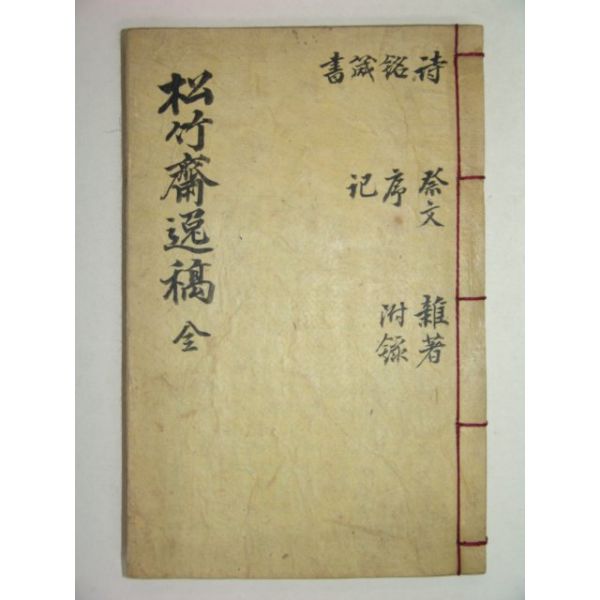 松竹齋逸稿 全
詩 銘 箴 書
祭文 序 記
雜著 附錄